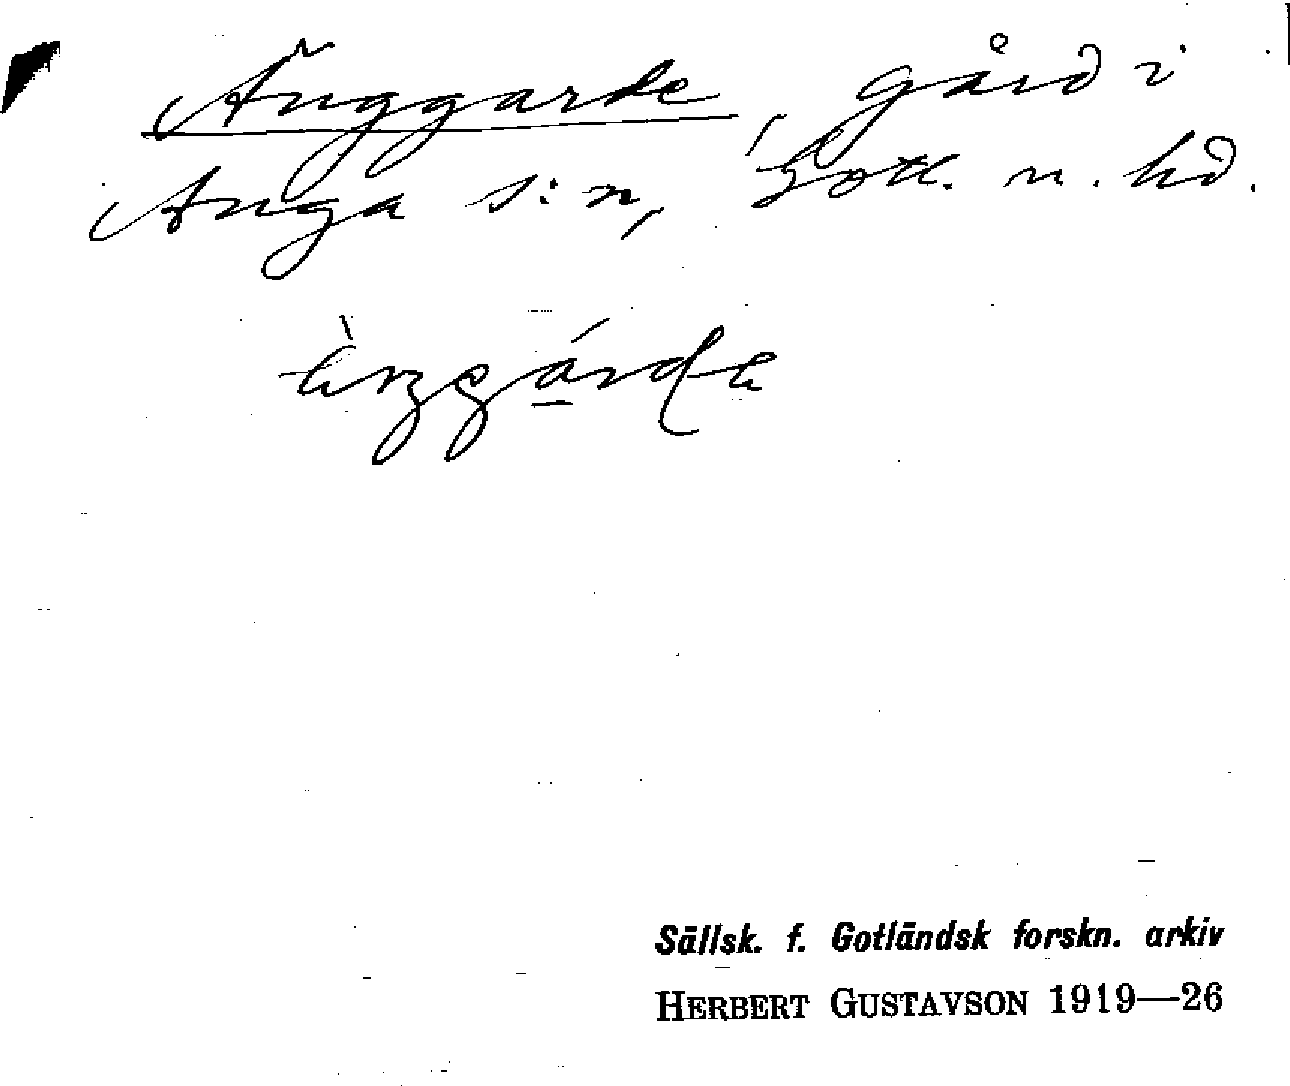 Änggarde, gård i
Anga s:n, Gotl. n. hd.
Sällsk. f. Gotländsk forskn. arkiv
HERBERT GUSTAVSON 1919—26